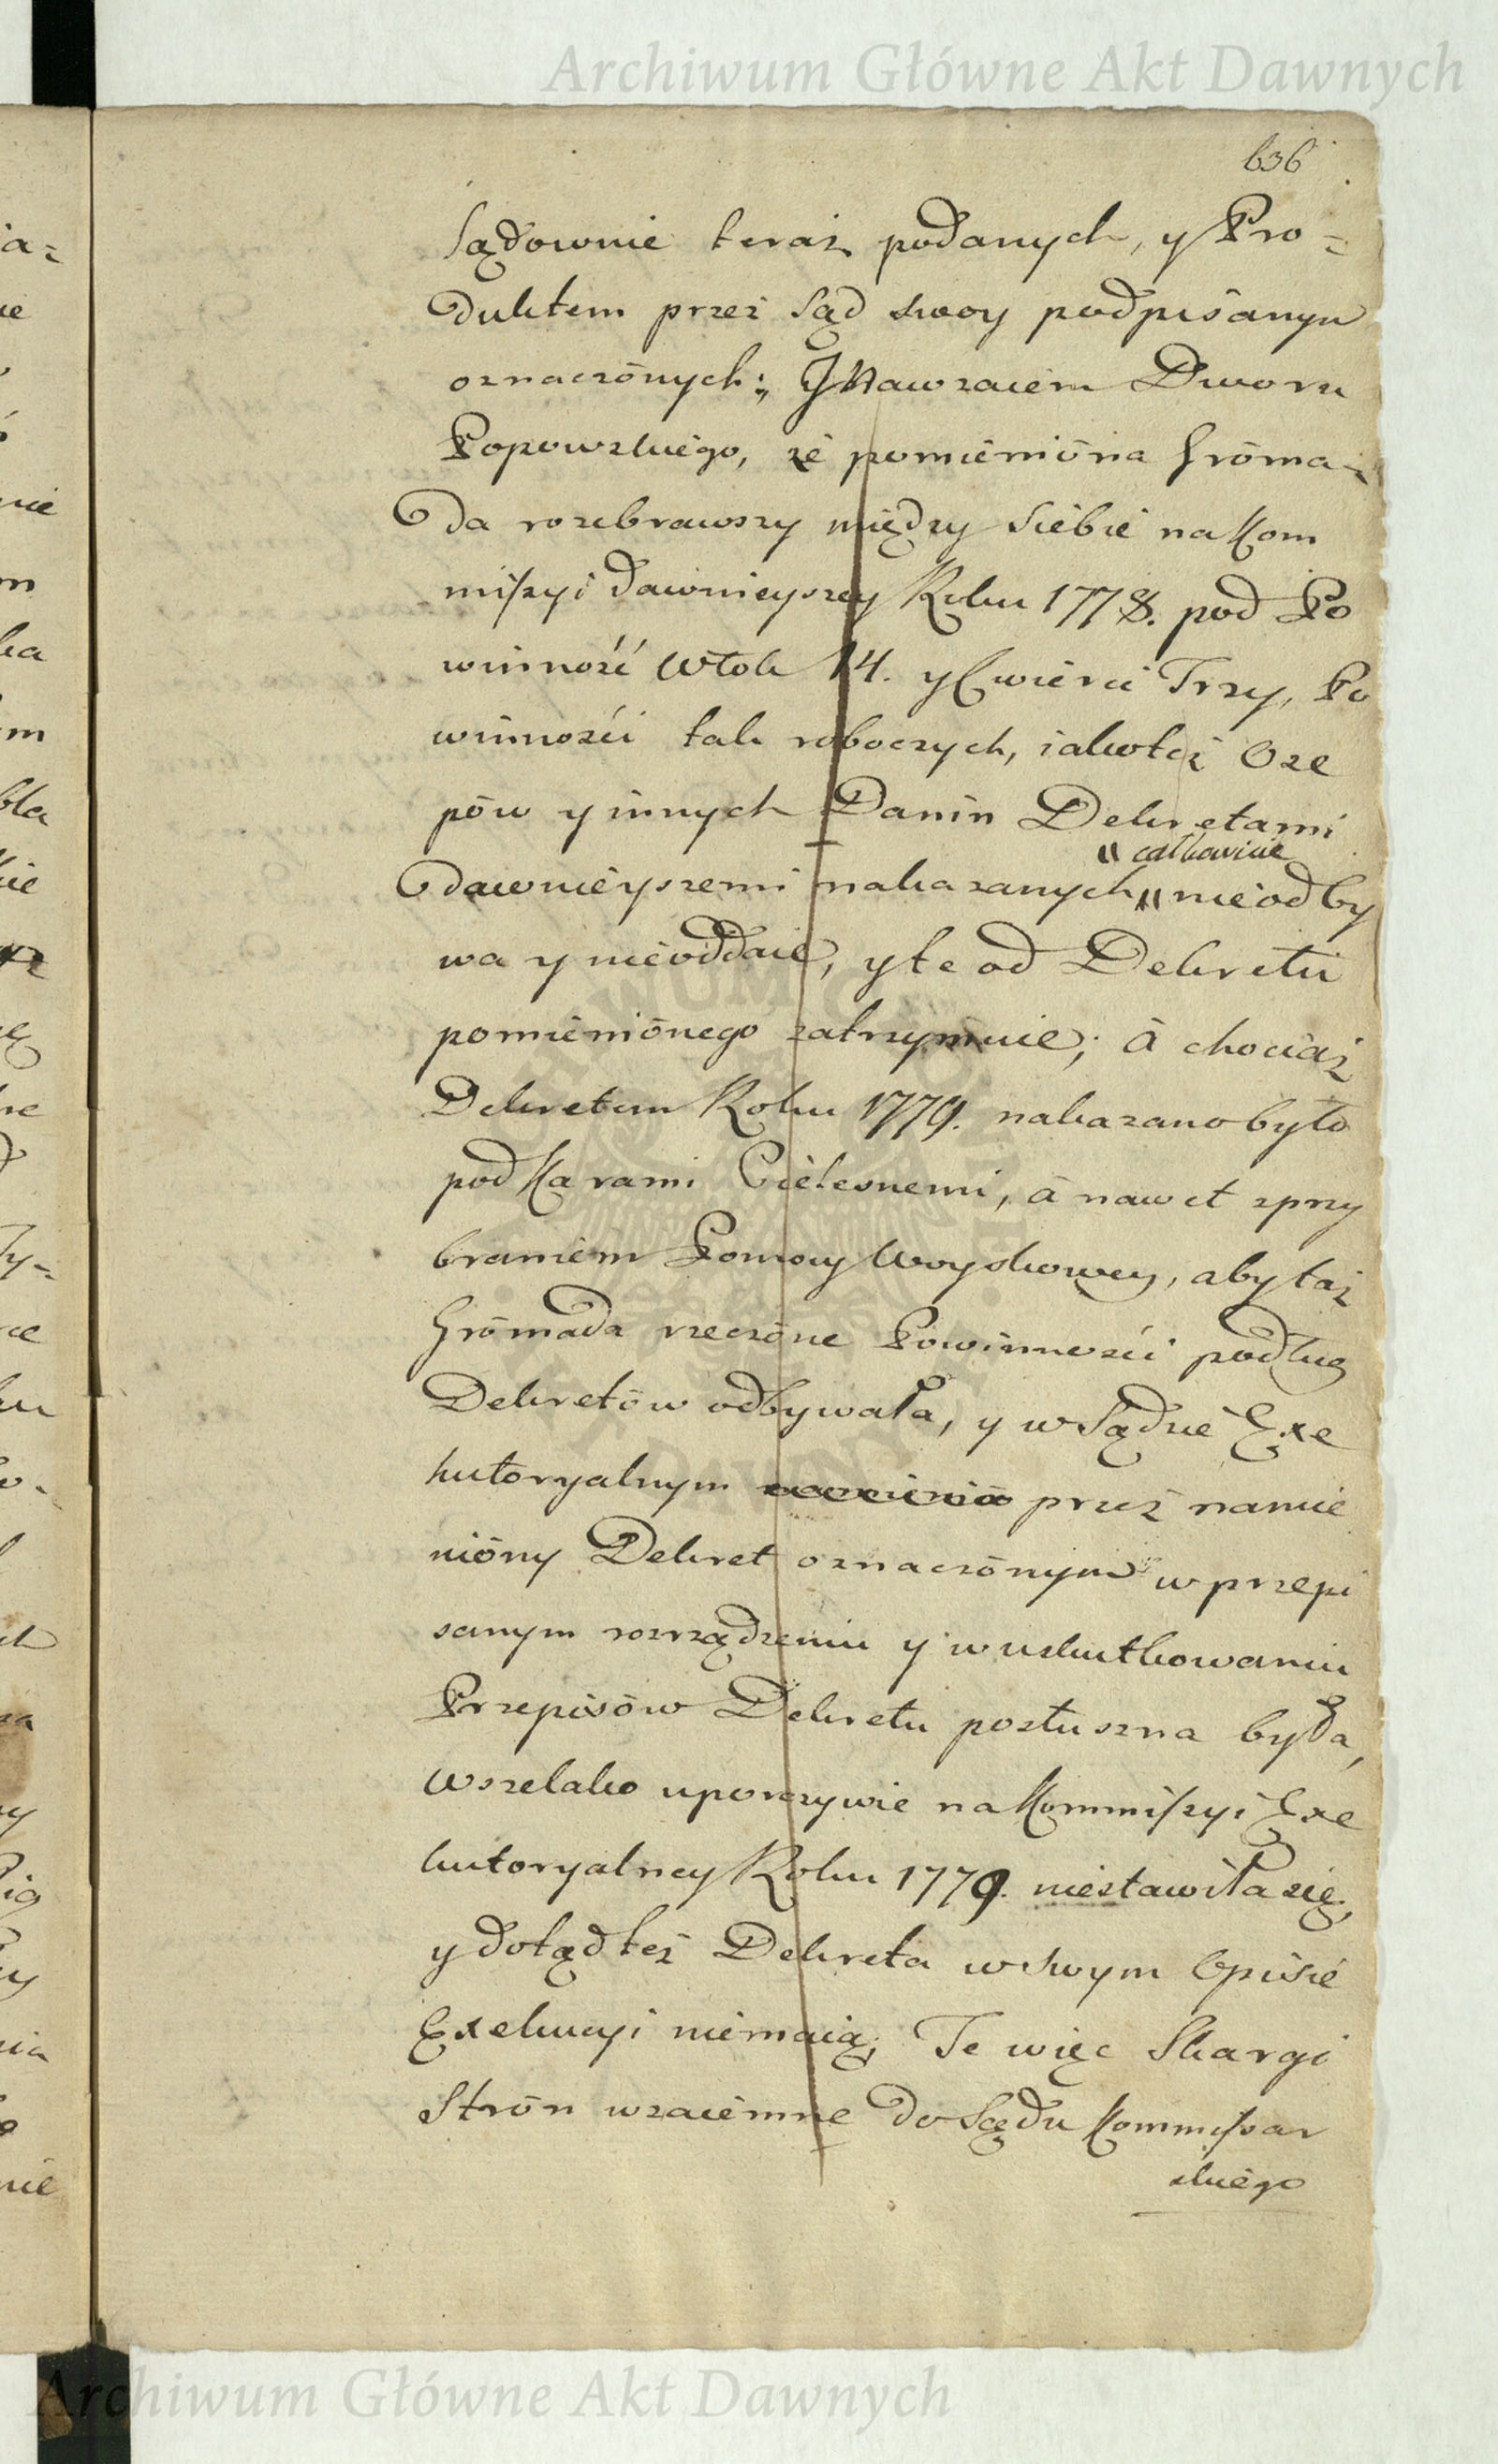 Archiwum Główne Akt Dawnych
636
Sądownie teraz podanych, y Pro=
duktem przez Sąd swoy podpisanym
oznaczonych; J Nawzaiem Dworu
Popowskiego, że pomieniona Groma=
da rozebrawszy między siebie na Kom
missyi dawnieyszey Roku 1778. pod Po
winność Włok 14. y Cwierci Trzy, Po
winności tak roboczych, iakoteż Ose
pów y innych Danin Dekretami
" całkowicie
dawnieyszemi nakazanych " nieodby
wa y nieoddaie, y te od Dekretu
pomienionego zatrzymuie; á chociaż
Dekretem Roku 1779. nakazano było
pod Karami Cielesnemi, á nawet z przy
braniem Pomocy Woyskowey, aby taż
Gromada rzeczone Powinności podług
Dekretów odbywała, y w Sądzie Exe
kutoryalnym przez namie
niony Dekret oznaczonym w przepi
sanym rozrządzeniu y w uskutkowaniu
Przepisów Dekretu posłuszna była,
wszelako uporczywie na Kommissyi Exe
kutoryalney Roku 1779. niestawiła się,
y dotąd też Dekreta w swym Opisie
Exekucyi niemaią; Te więc Skargi
Stron wzaiemne do Sądu Kommissar
skiego
Archiwum Główne Akt Dawnych